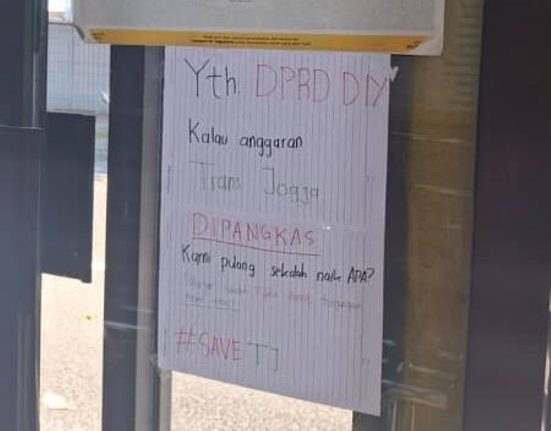 Yth. DPRD DIY
Kalau anggaran
Trans Jogja
DIPANGKAS
Kami pulang sekolah naik APA?
#SAVE TJ